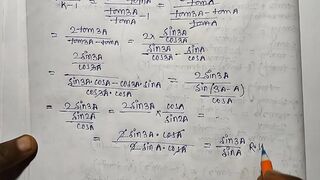 K-1 tanA -1 tanA
= 2tan3A / tan3A-tanA = 2× sin3A/cos3A / sin3A/cos3A - sinA/cosA
= 2sin3A/cos3A / sin3A·cosA-cos3A·sinA / cos3A·cosA = 2sin3A/cos3A / sin(3A-A)/cosA
= 2sin3A / sin2A/cosA = 2sin3A / sin2A × cosA =
= 2sin3A·cosA / 2sinA·cosA = sin3A / sinA R.H